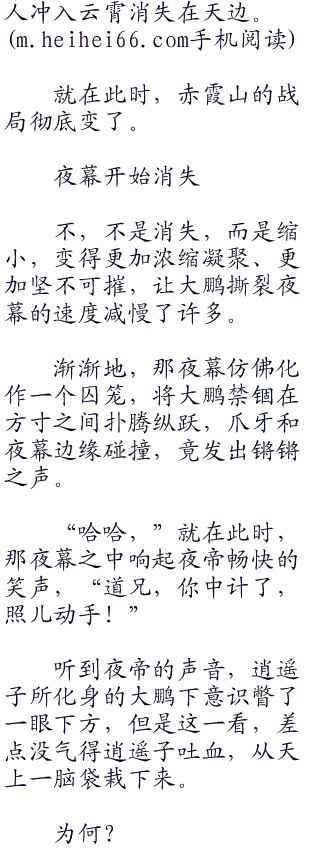 人冲入云霄消失在天边。
(m.heihei66.com手机阅读)
就在此时，赤霞山的战
局彻底变了。
夜幕开始消失
不，不是消失，而是缩
小，变得更加浓缩凝聚、更
加坚不可摧，让大鹏撕裂夜
幕的速度减慢了许多。
渐渐地，那夜幕仿佛化
作一个囚笼，将大鹏禁锢在
方寸之间扑腾纵跃，爪牙和
夜幕边缘碰撞，竟发出锵锵
之声。
“哈哈，”就在此时，
那夜幕之中响起夜帝畅快的
笑声，“道兄，你中计了，
照儿动手！”
听到夜帝的声音，逍遥
子所化身的大鹏下意识瞥了
一眼下方，但是这一看，差
点没气得逍遥子吐血，从天
上一脑袋栽下来。
为何？